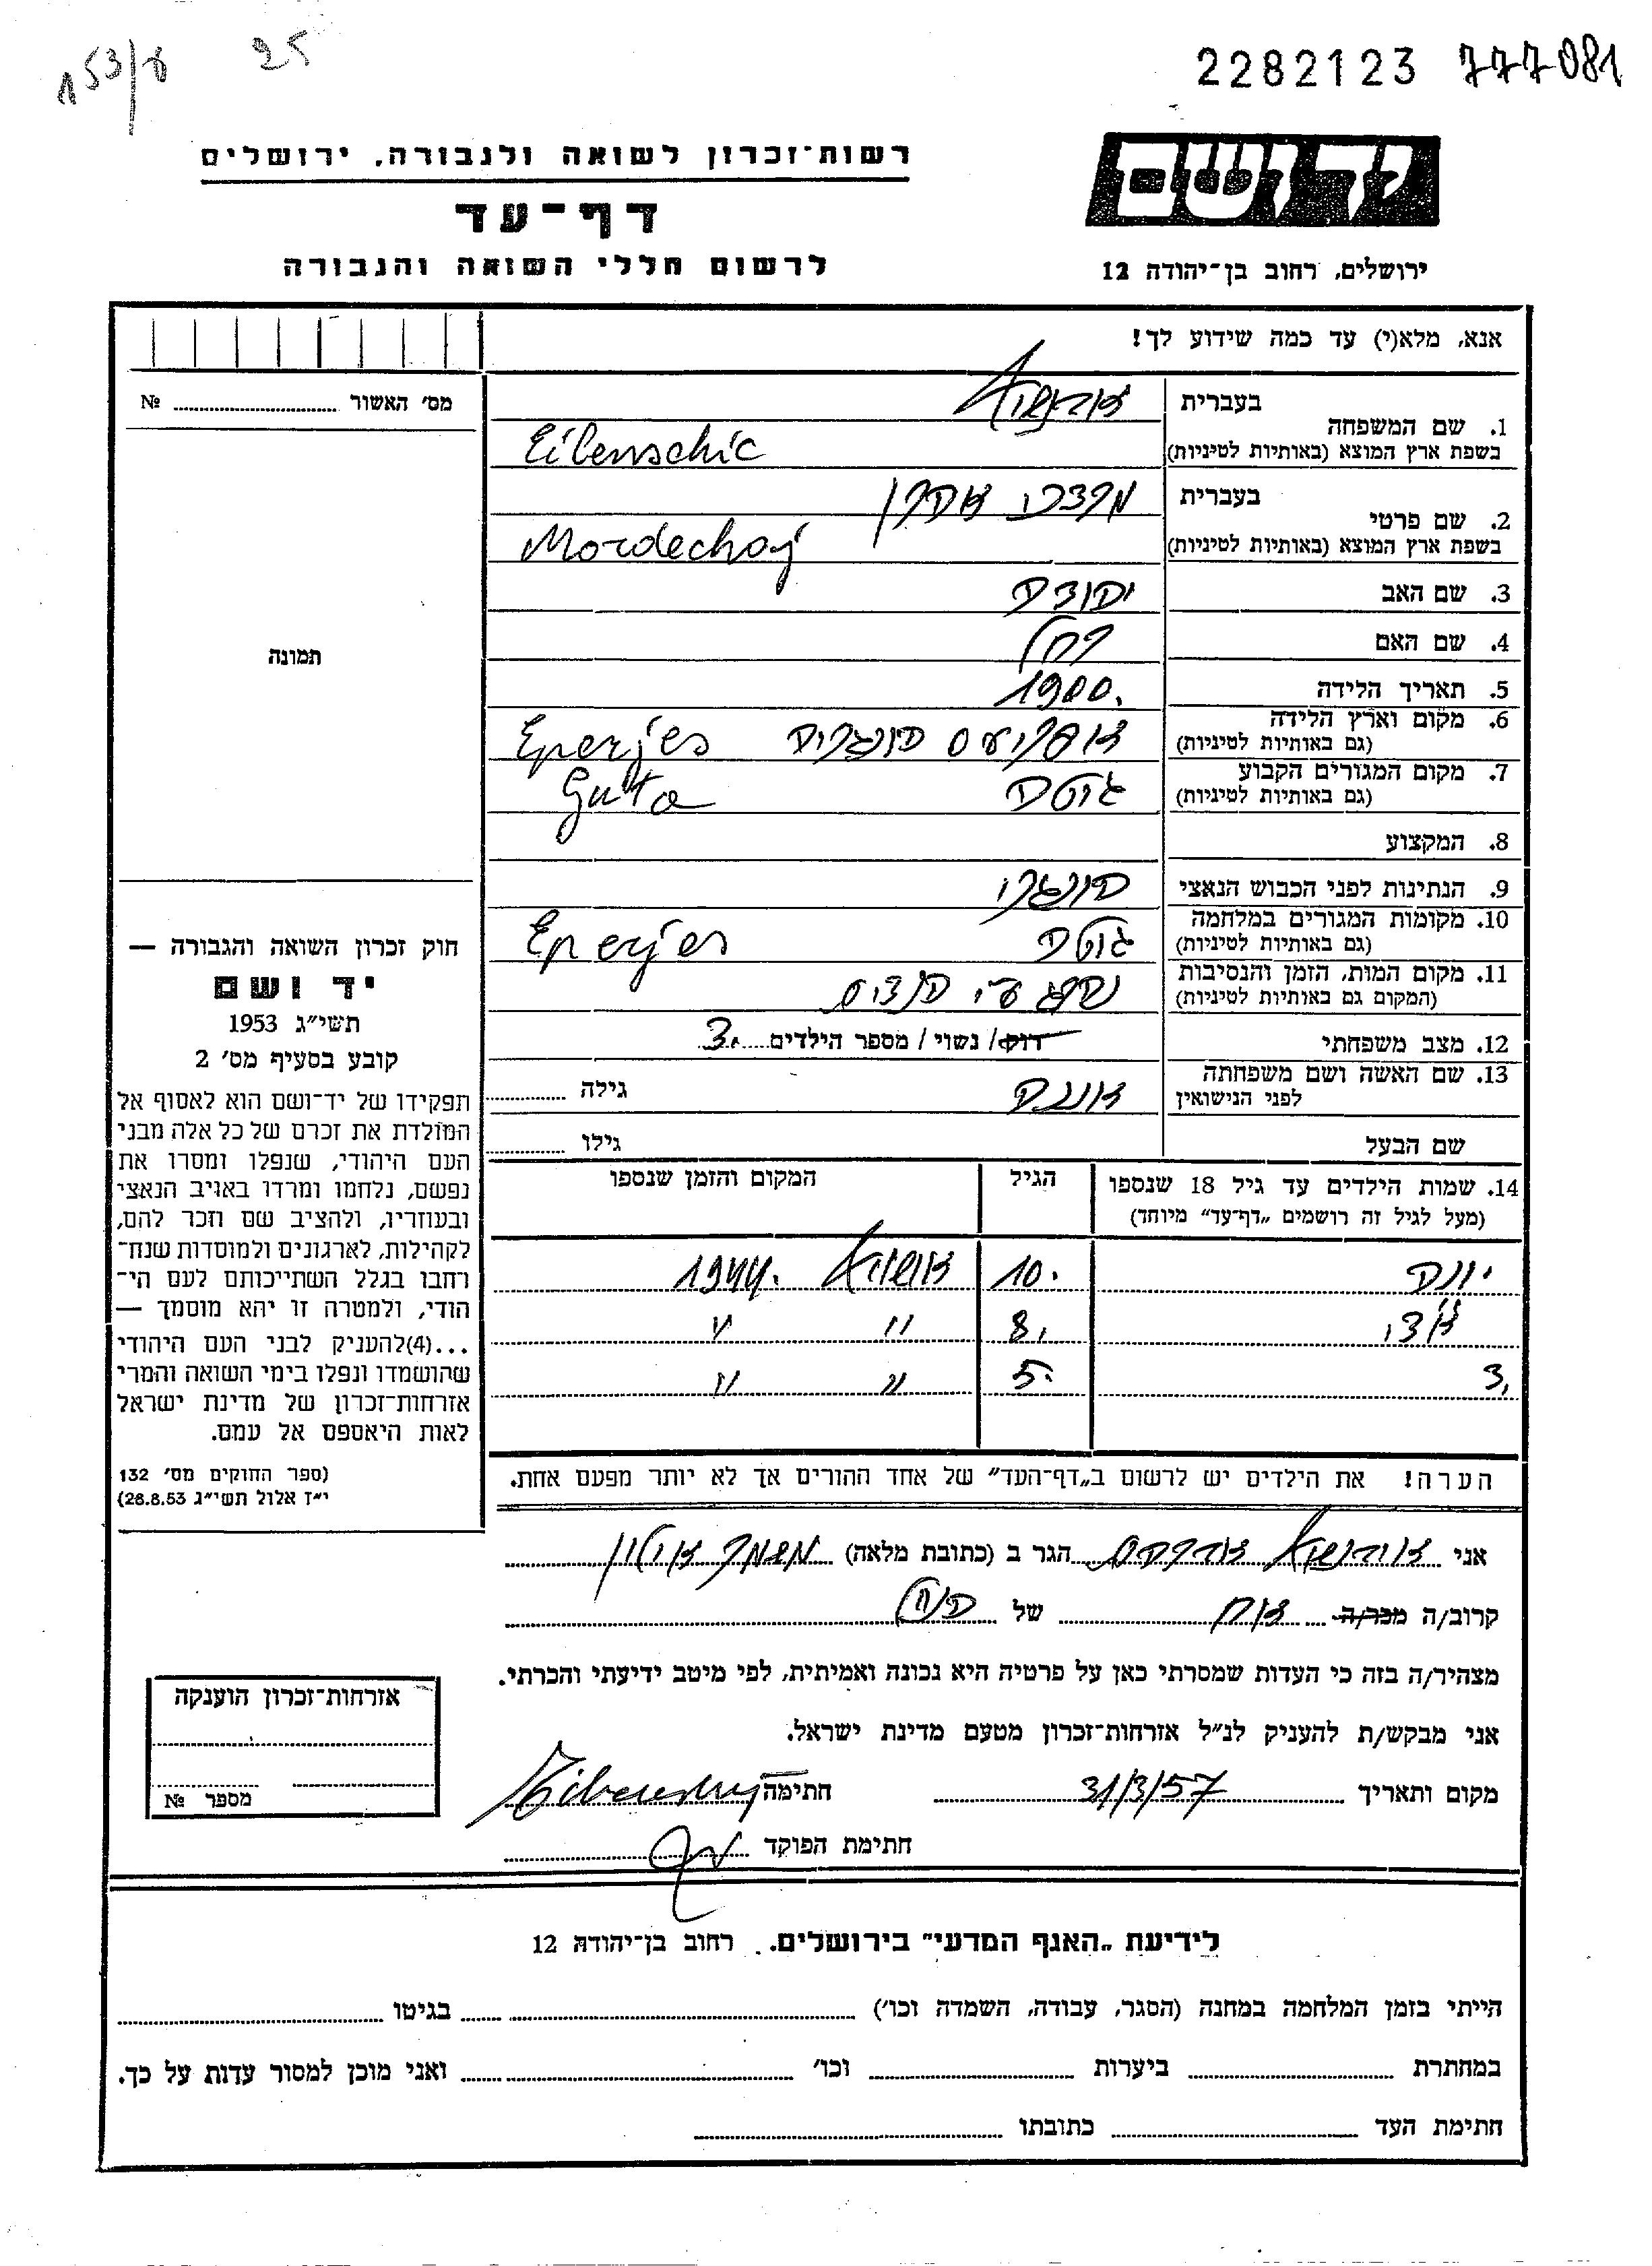 153/8 25
2282123 777081
רשות-זכרון לשואה ולגבורה, ירושלים
דף-עד
לרשום חללי השואה והגבורה
יד ושם
ירושלים, רחוב בן-יהודה 12
אנא, מלא(י) עד כמה שידוע לך!
מס' האשור № ........
1. שם המשפחה בעברית
בשפת ארץ המוצא (באותיות לטיניות) Eilenschic
2. שם פרטי בעברית מרדכי אהרן
בשפת ארץ המוצא (באותיות לטיניות) Mordechaj
3. שם האב יהודה
4. שם האם רחל
5. תאריך הלידה 1900.
6. מקום וארץ הלידה
(גם באותיות לטיניות) הונגריה Eperjes
7. מקום המגורים הקבוע
(גם באותיות לטיניות) גוטה Guta
8. המקצוע
9. הנתינות לפני הכבוש הנאצי הונגרי
10. מקומות המגורים במלחמה
(גם באותיות לטיניות) גוטה Eperjes
11. מקום המות, הזמן והנסיבות
(המקום גם באותיות לטיניות) נהרג ע"י
12. מצב משפחתי רווק/ נשוי / מספר הילדים 3.
13. שם האשה ושם משפחתה
לפני הנישואין גילה ........
שם הבעל גילו ........
14. שמות הילדים עד גיל 18 שנספו
(מעל לגיל זה רושמים „דף-עד" מיוחד)
הגיל
המקום והזמן שנספו
יונה 10. 1944.
8. " "
3. 5. " "
הערה! את הילדים יש לרשום ב„דף-העד" של אחד ההורים אך לא יותר מפעם אחת.
תמונה
חוק זכרון השואה והגבורה —
יד ושם
תשי"ג 1953
קובע בסעיף מס' 2
תפקידו של יד-ושם הוא לאסוף אל
המולדת את זכרם של כל אלה מבני
העם היהודי, שנפלו ומסרו את
נפשם, נלחמו ומרדו באויב הנאצי
ובעוזריו, ולהציב שם וזכר להם,
לקהילות, לארגונים ולמוסדות שנח-
רחבו בגלל השתייכותם לעם הי-
הודי, ולמטרה זו יהא מוסמך —
...(4)להעניק לבני העם היהודי
שהושמדו ונפלו בימי השואה והמרי
אזרחות-זכרון של מדינת ישראל
לאות היאספם אל עמם.
(ספר החוקים מס' 132
י"ז אלול תשי"ג 26.8.53)
אני הגר ב (כתובת מלאה) משמר אילון
קרוב/ה מכר/ה אח של הנ"ל
מצהיר/ה בזה כי העדות שמסרתי כאן על פרטיה היא נכונה ואמיתית, לפי מיטב ידיעתי והכרתי.
אני מבקש/ת להעניק לנ"ל אזרחות-זכרון מטעם מדינת ישראל.
מקום ותאריך 31/3/57 חתימה
חתימת הפוקד
אזרחות-זכרון הוענקה
מספר №
לידיעת „האגף המדעי" בירושלים. רחוב בן-יהודה 12
הייתי בזמן המלחמה במחנה (הסגר, עבודה, השמדה וכו') ........ בגיטו ........
במחתרת ........ ביערות ........ וכו' ........ ואני מוכן למסור עדות על כך.
חתימת העד ........ כתובתו ........